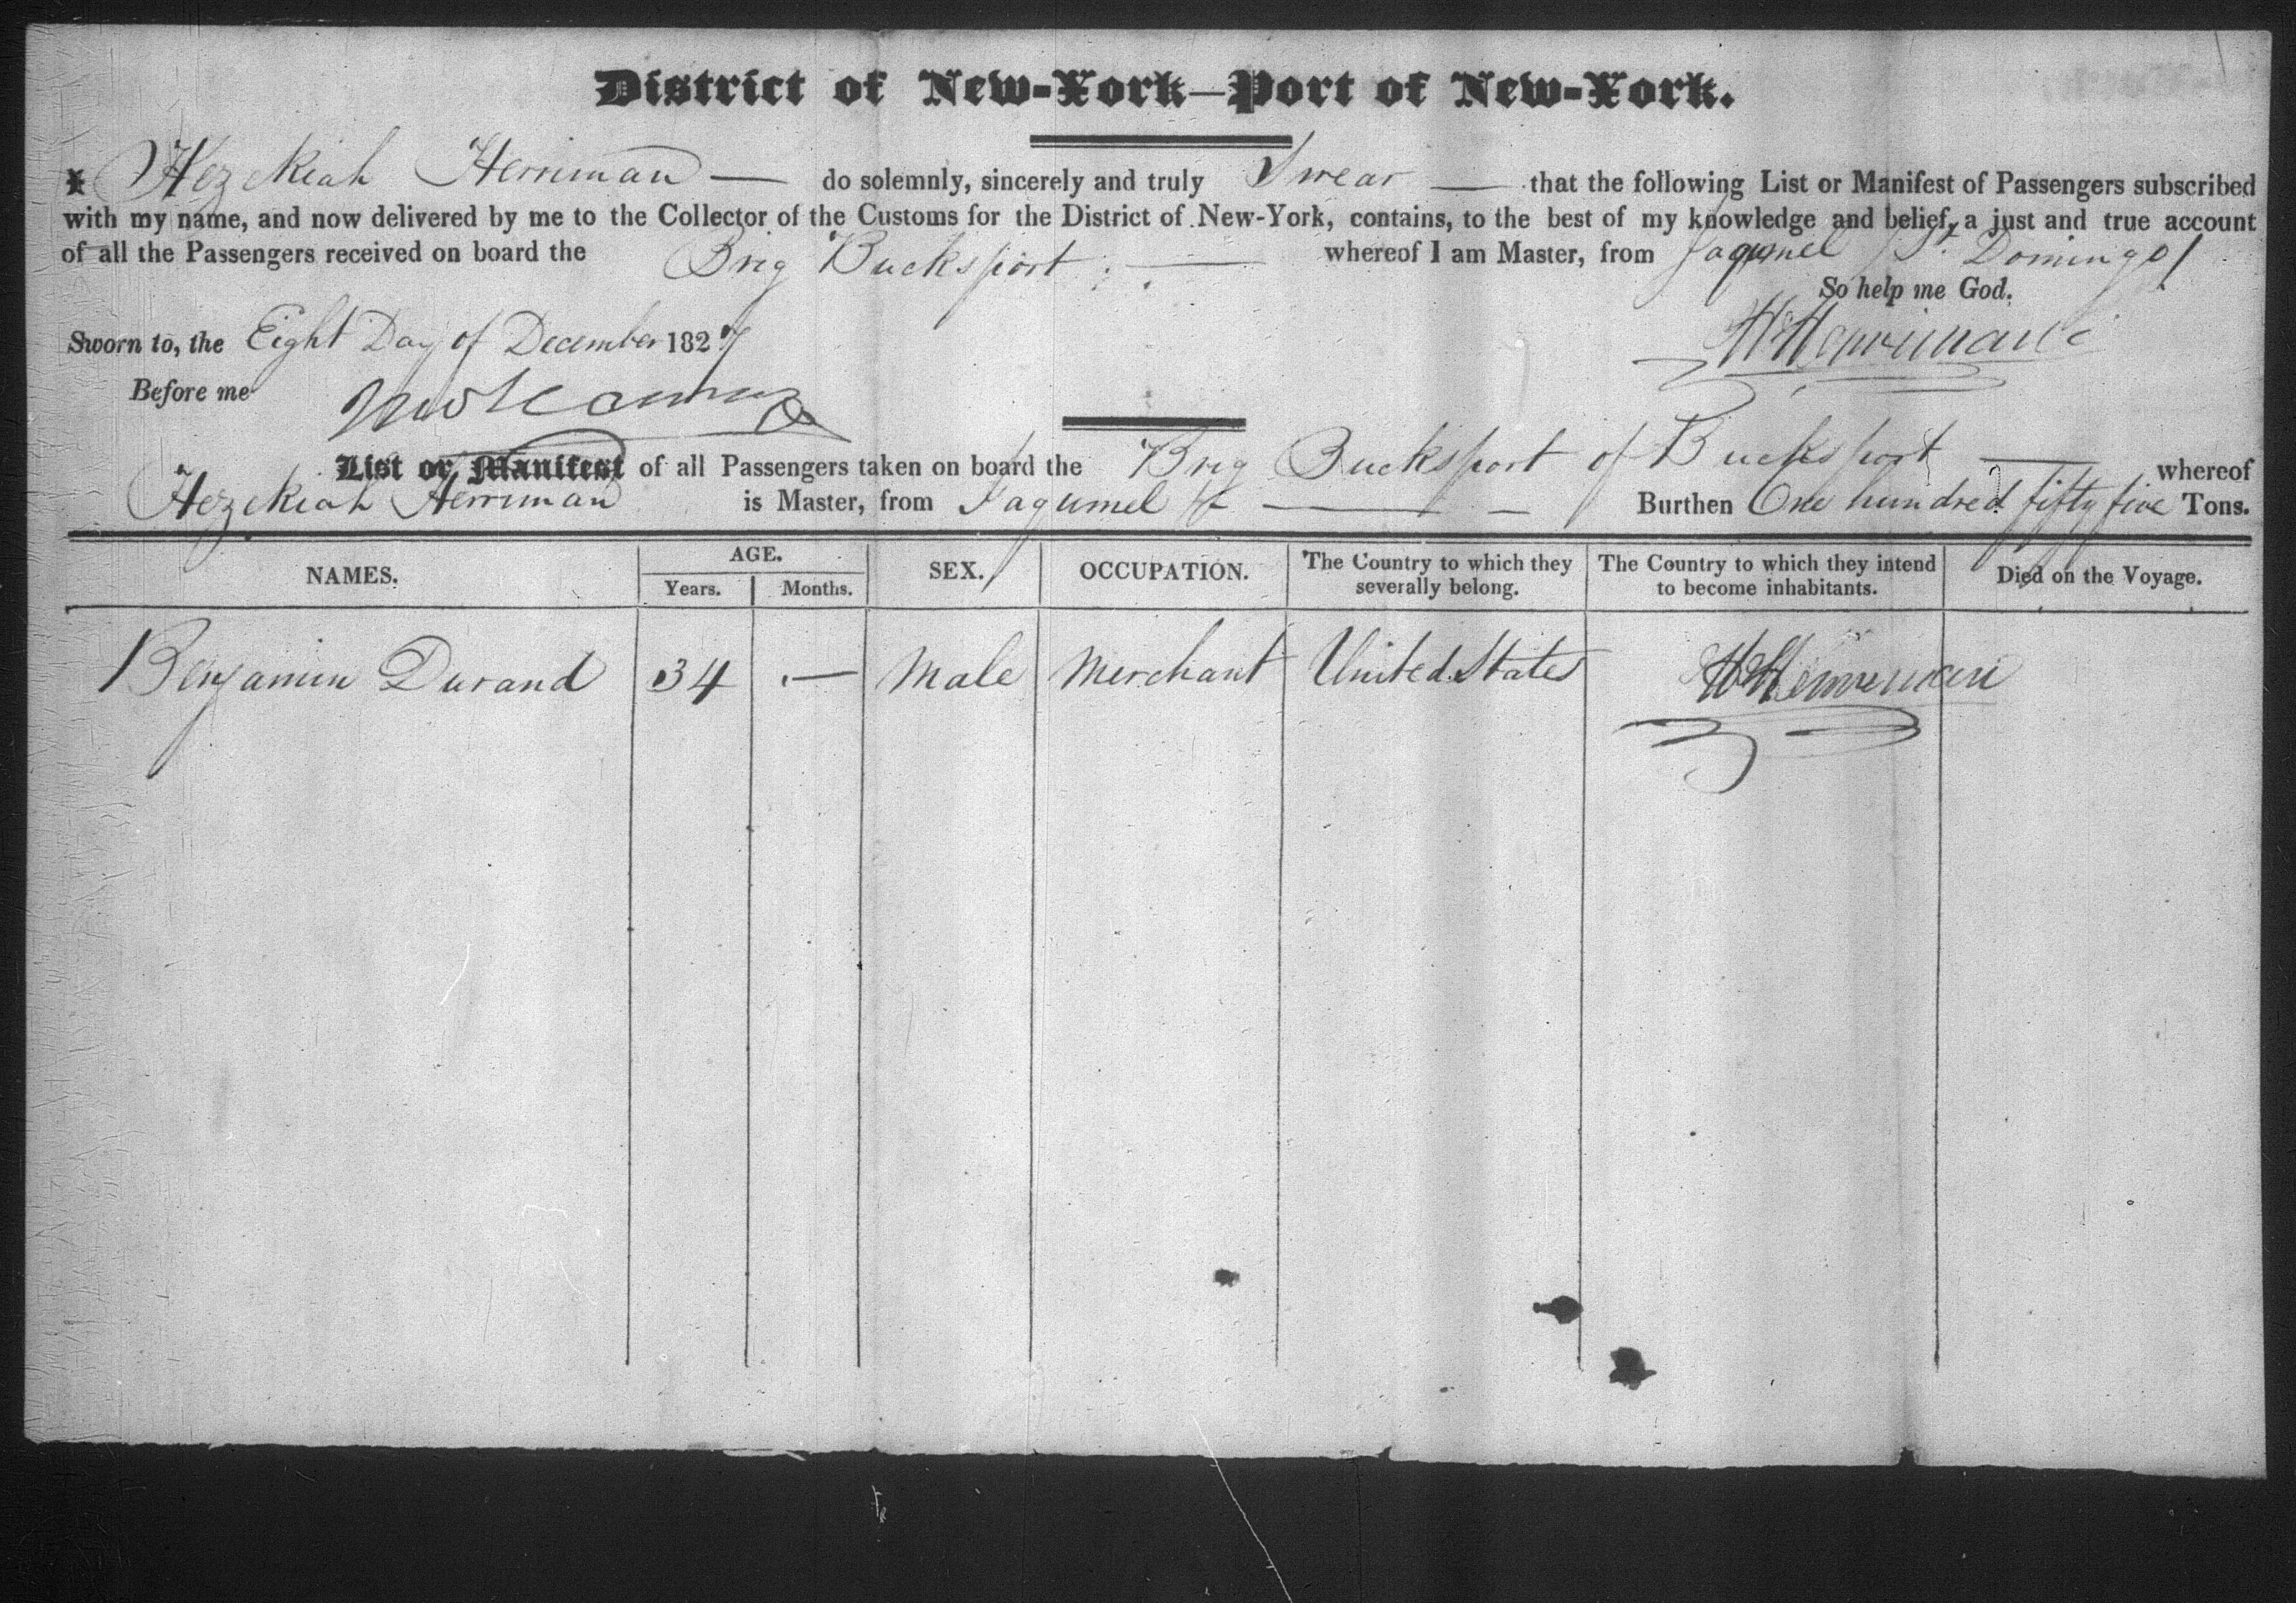 District of New-York—Port of New-York.
I Hezekiah Herriman — do solemnly, sincerely and truly Swear — that the following List or Manifest of Passengers subscribed
with my name, and now delivered by me to the Collector of the Customs for the District of New-York, contains, to the best of my knowledge and belief, a just and true account
of all the Passengers received on board the Brig Bucksport — whereof I am Master, from Jaqumel St. Domingo
So help me God.
Sworn to, the Eight Day of December 1827
H Herriman
Before me
List or Manifest of all Passengers taken on board the Brig Bucksport of Bucksport — whereof
Hezekiah Herriman is Master, from Jaqumel — Burthen One hundred fifty five Tons.
NAMES. AGE. SEX. OCCUPATION. The Country to which they severally belong. The Country to which they intend to become inhabitants. Died on the Voyage.
Years. Months.
Benjamin Durand 34 — Male Merchant United States H Herriman